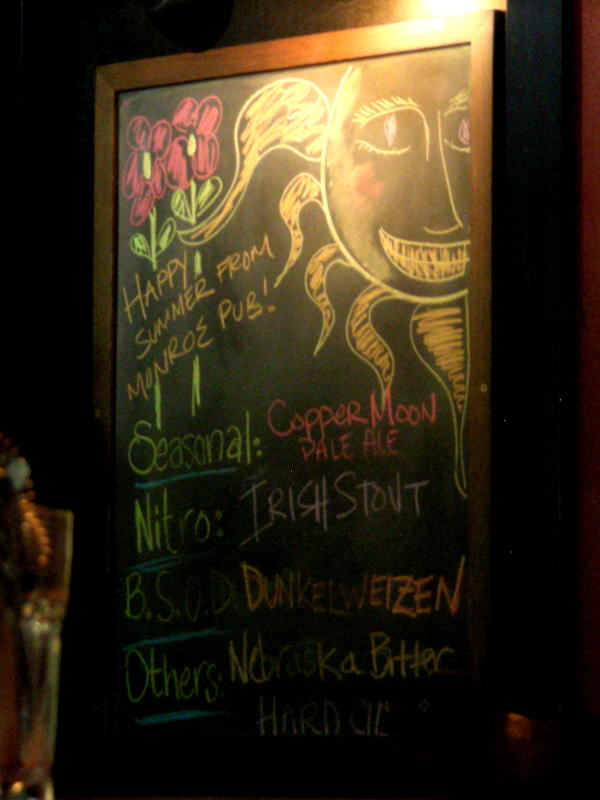 HAPPY
SUMMER FROM
MONROE PUB!
Seasonal: Copper Moon
PALE ALE
Nitro: IRISH STOUT
B.S.O.D. DUNKELWEIZEN
Others: Nebraska Bitter
HARD